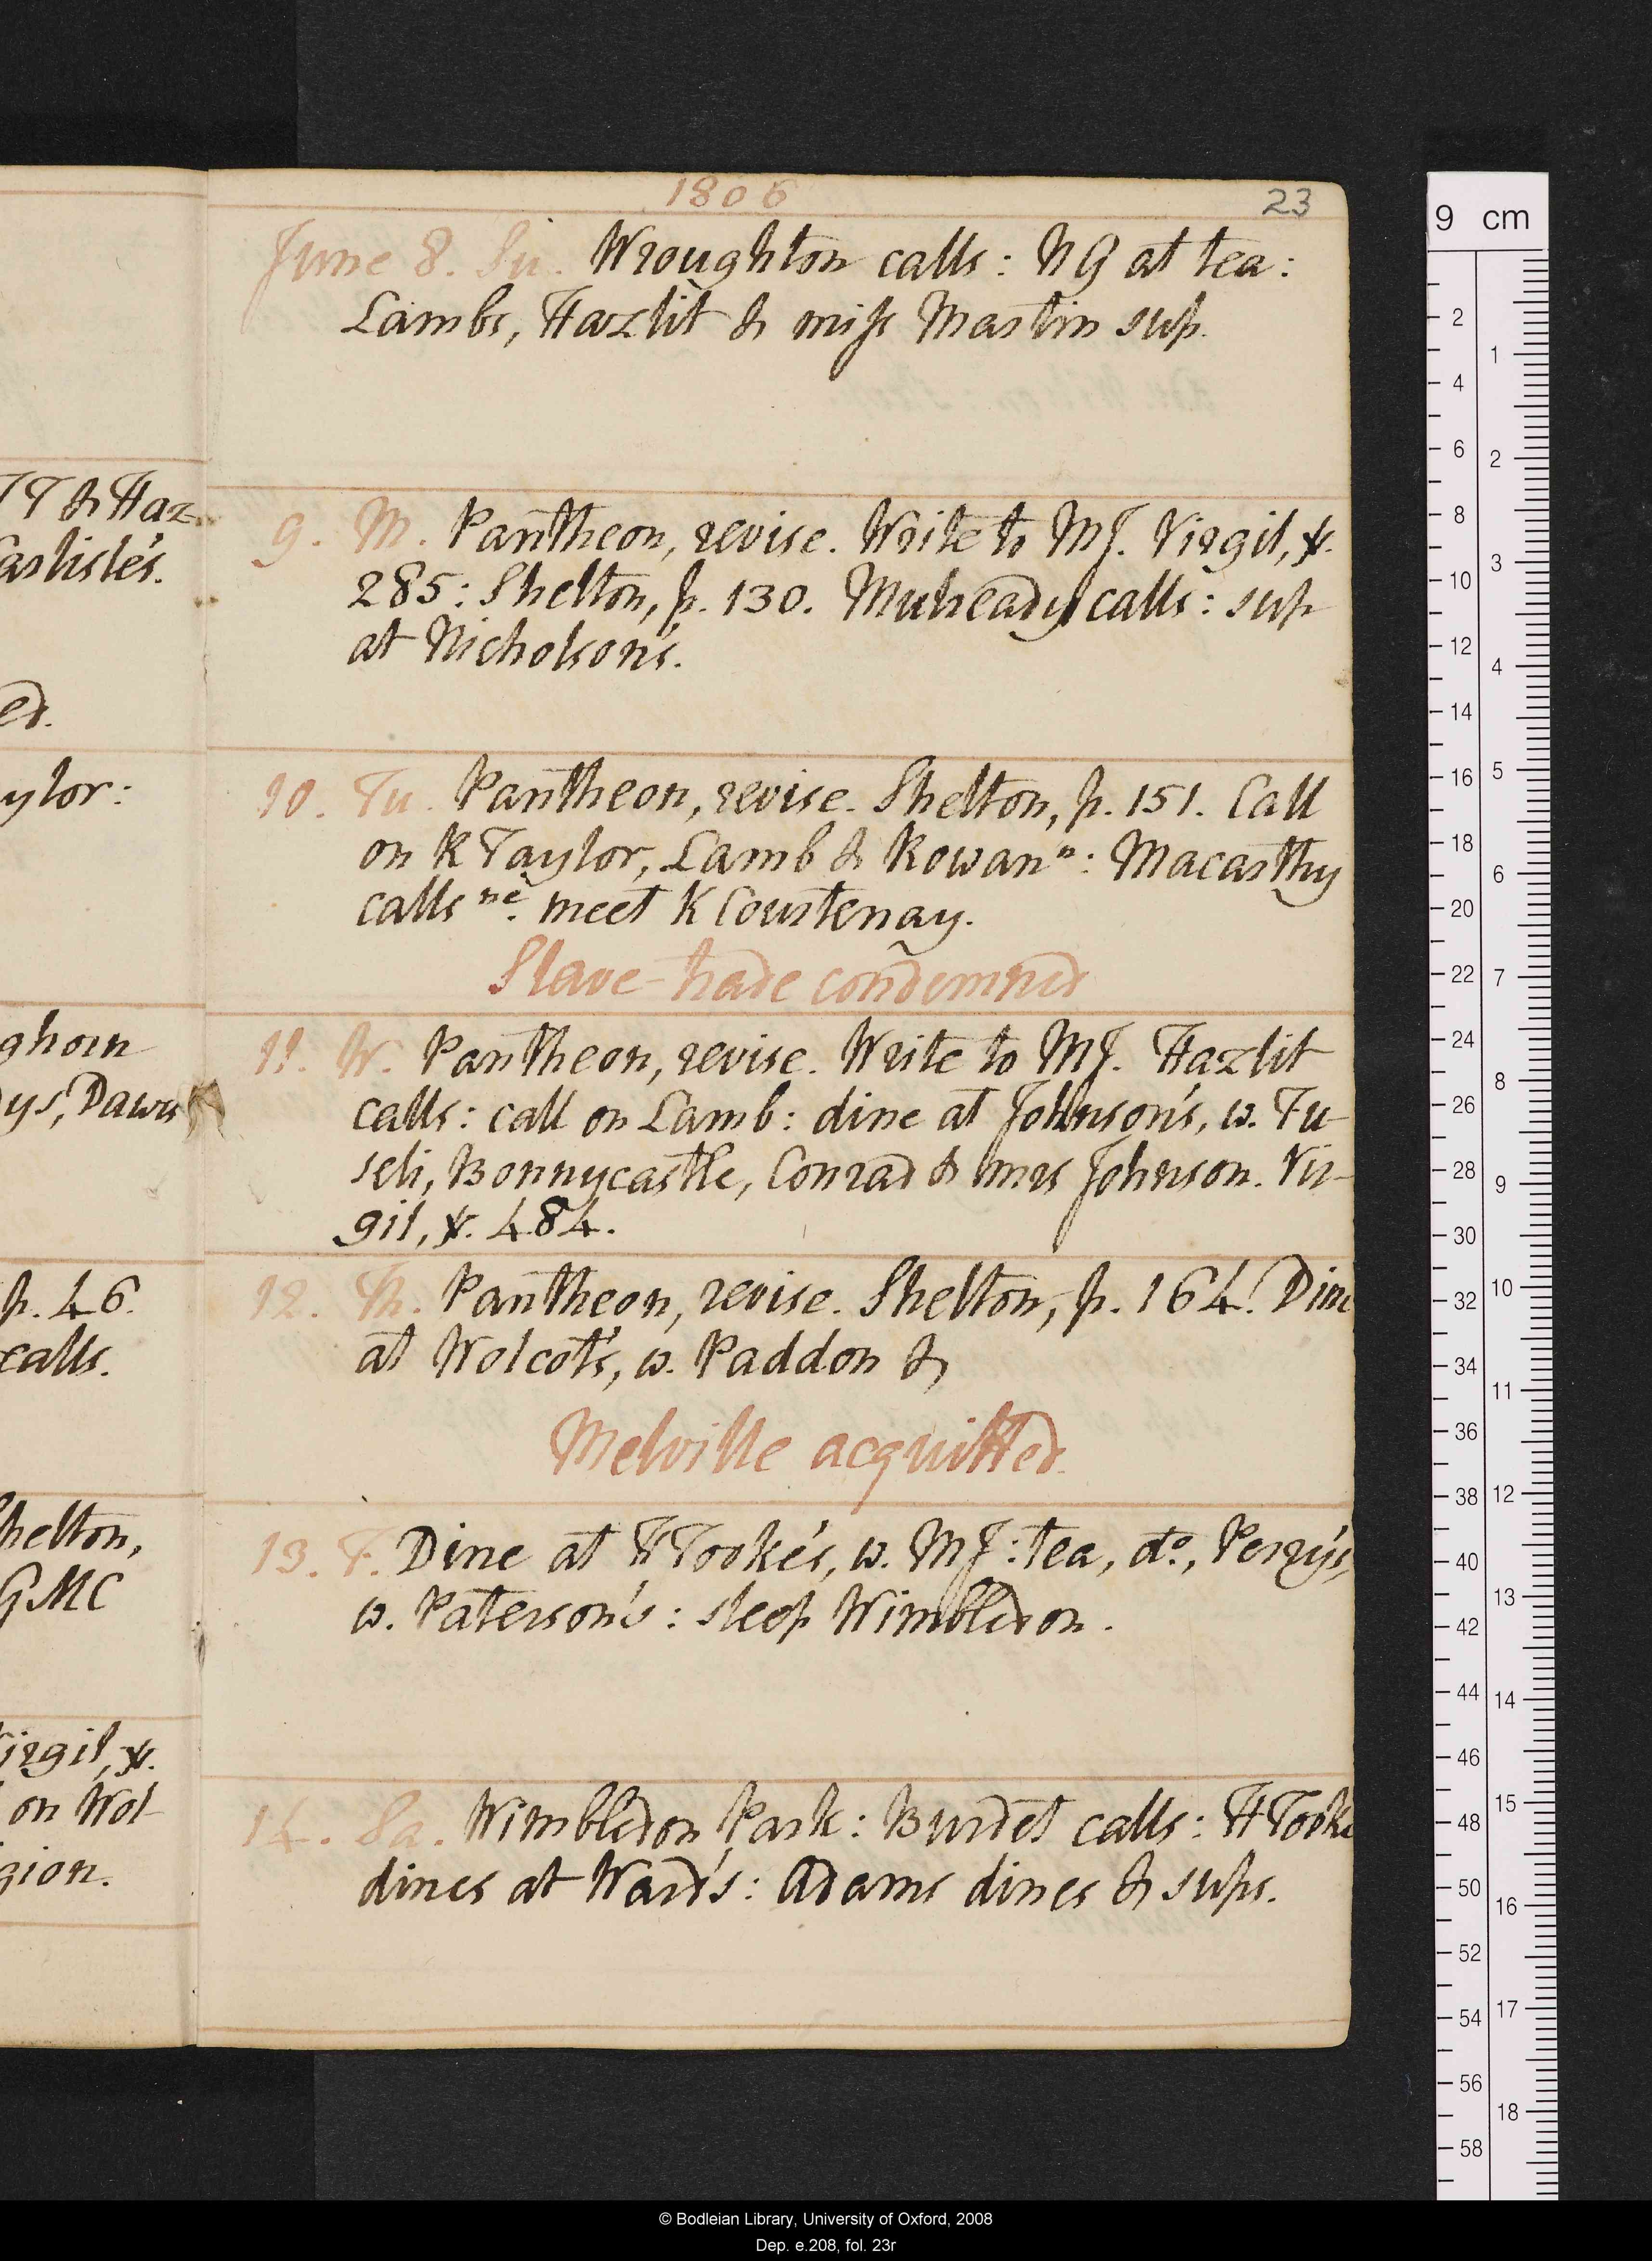 1806
23
June 8. Su. Wroughton calls: NG at tea:
Lambs, Hazlit & miss Mastin sup.
9. M. Pantheon, revise. Write to MJ. Virgil, v.
285: Shelton, p. 130. Mulready calls: sup
at Nicholson's.
10. Tu. Pantheon, revise. Shelton, p. 151. Call
on K Taylor, Lamb & Rowan n: Macarthy
calls ne. meet K Courtenay.
Slave-trade condemned
11. W. Pantheon, revise. Write to MJ. Hazlit
calls: call on Lamb: dine at Johnson's, w. Fu-
seli, Bonnycastle, Conrad & mrs Johnson. Vir-
gil, v. 484.
12. Th. Pantheon, revise. Shelton, p. 164. Dine
at Wolcot's, w. Paddon &
Melville acquitted.
13. F. Dine at HTooke's, w. MJ: tea, do., Perry's,
w. Paterson's: sleep Wimbledon.
14. Sa. Wimbledon Park: Burdet calls: HTooke
dines at Ward's: Adams dines & sups.
TT & Haz-
arlisle's.
ed.
ylor:
ghorn
ys, Dawe
p. 46.
calls.
helton,
GMC
irgil, v.
on Wol
gion.
9 cm
2
4
6
8
10
12
14
16
18
20
22
24
26
28
30
32
34
36
38
40
42
44
46
48
50
52
54
56
58
1
2
3
4
5
6
7
8
9
10
11
12
13
14
15
16
17
18
© Bodleian Library, University of Oxford, 2008
Dep. e.208, fol. 23r